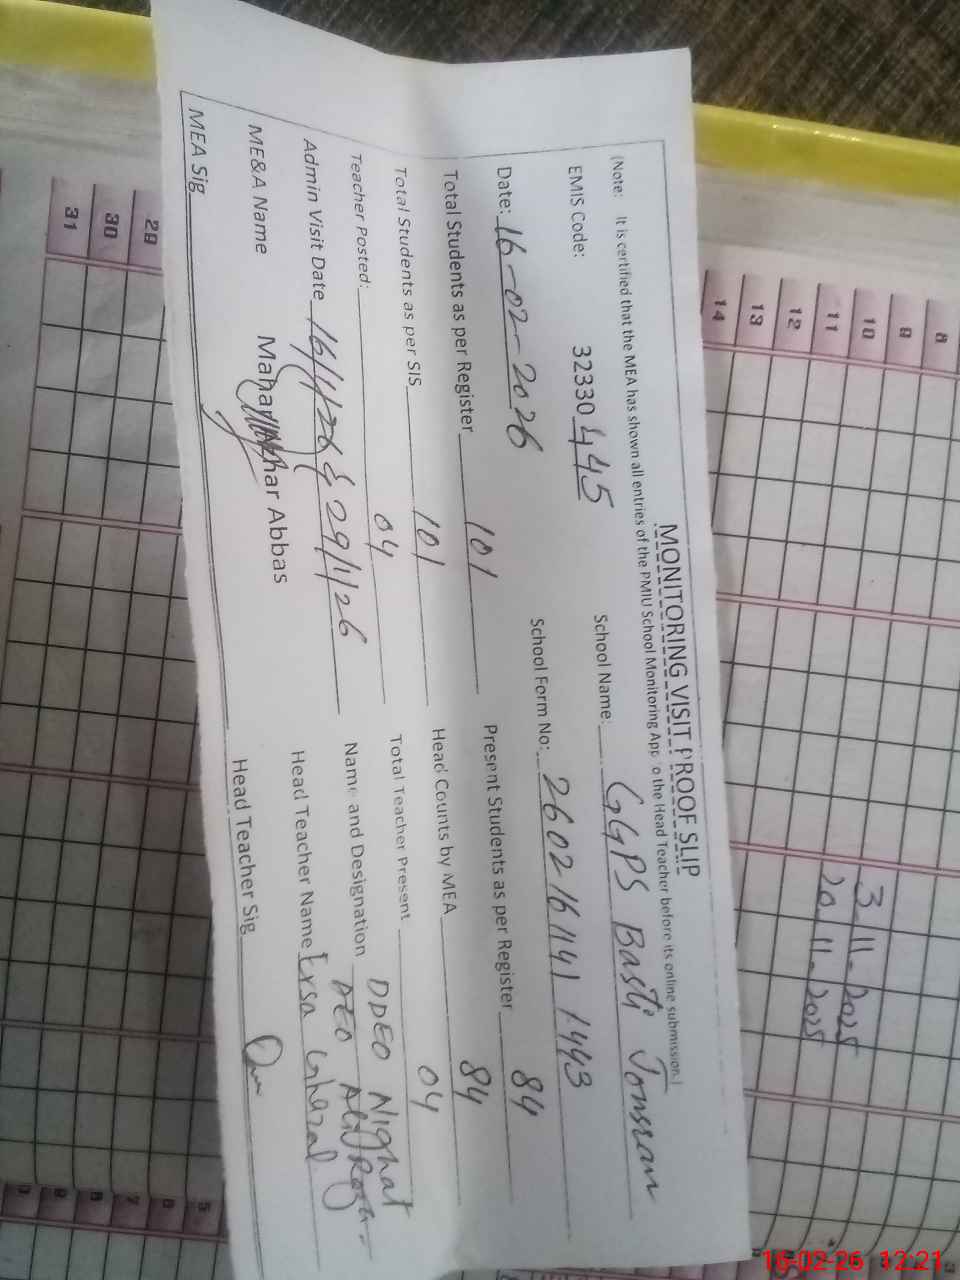 MONITORING VISIT PROOF SLIP
(Note: It is certified that the MEA has shown all entries of the PMIU School Monitoring App to the Head Teacher before its online submission.)
EMIS Code: 32330445 School Name: GGPS Basti
Date: 16-02-2026 School Form No: 26021614141443
Total Students as per Register 101 Present Students as per Register 84
Total Students as per SIS 101 Head Counts by MEA 84
Teacher Posted: 04 Total Teacher Present 04
Admin Visit Date 16/1/26 & 29/1/26 Name and Designation DDEO Nighat
AEO
ME&A Name Mahar Abbas Head Teacher Name Ersa Ghazal
MEA Sig Head Teacher Sig
3-11-2025
20-11-2025
8
9
10
11
12
13
14
29
30
31
5
6
7
8
9
16-02-26 12:21